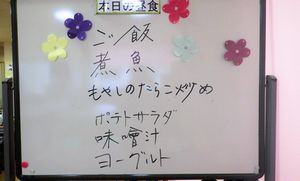 本日の昼食
ご飯
煮魚
もやしのたらこ炒め
ポテトサラダ
味噌汁
ヨーグルト